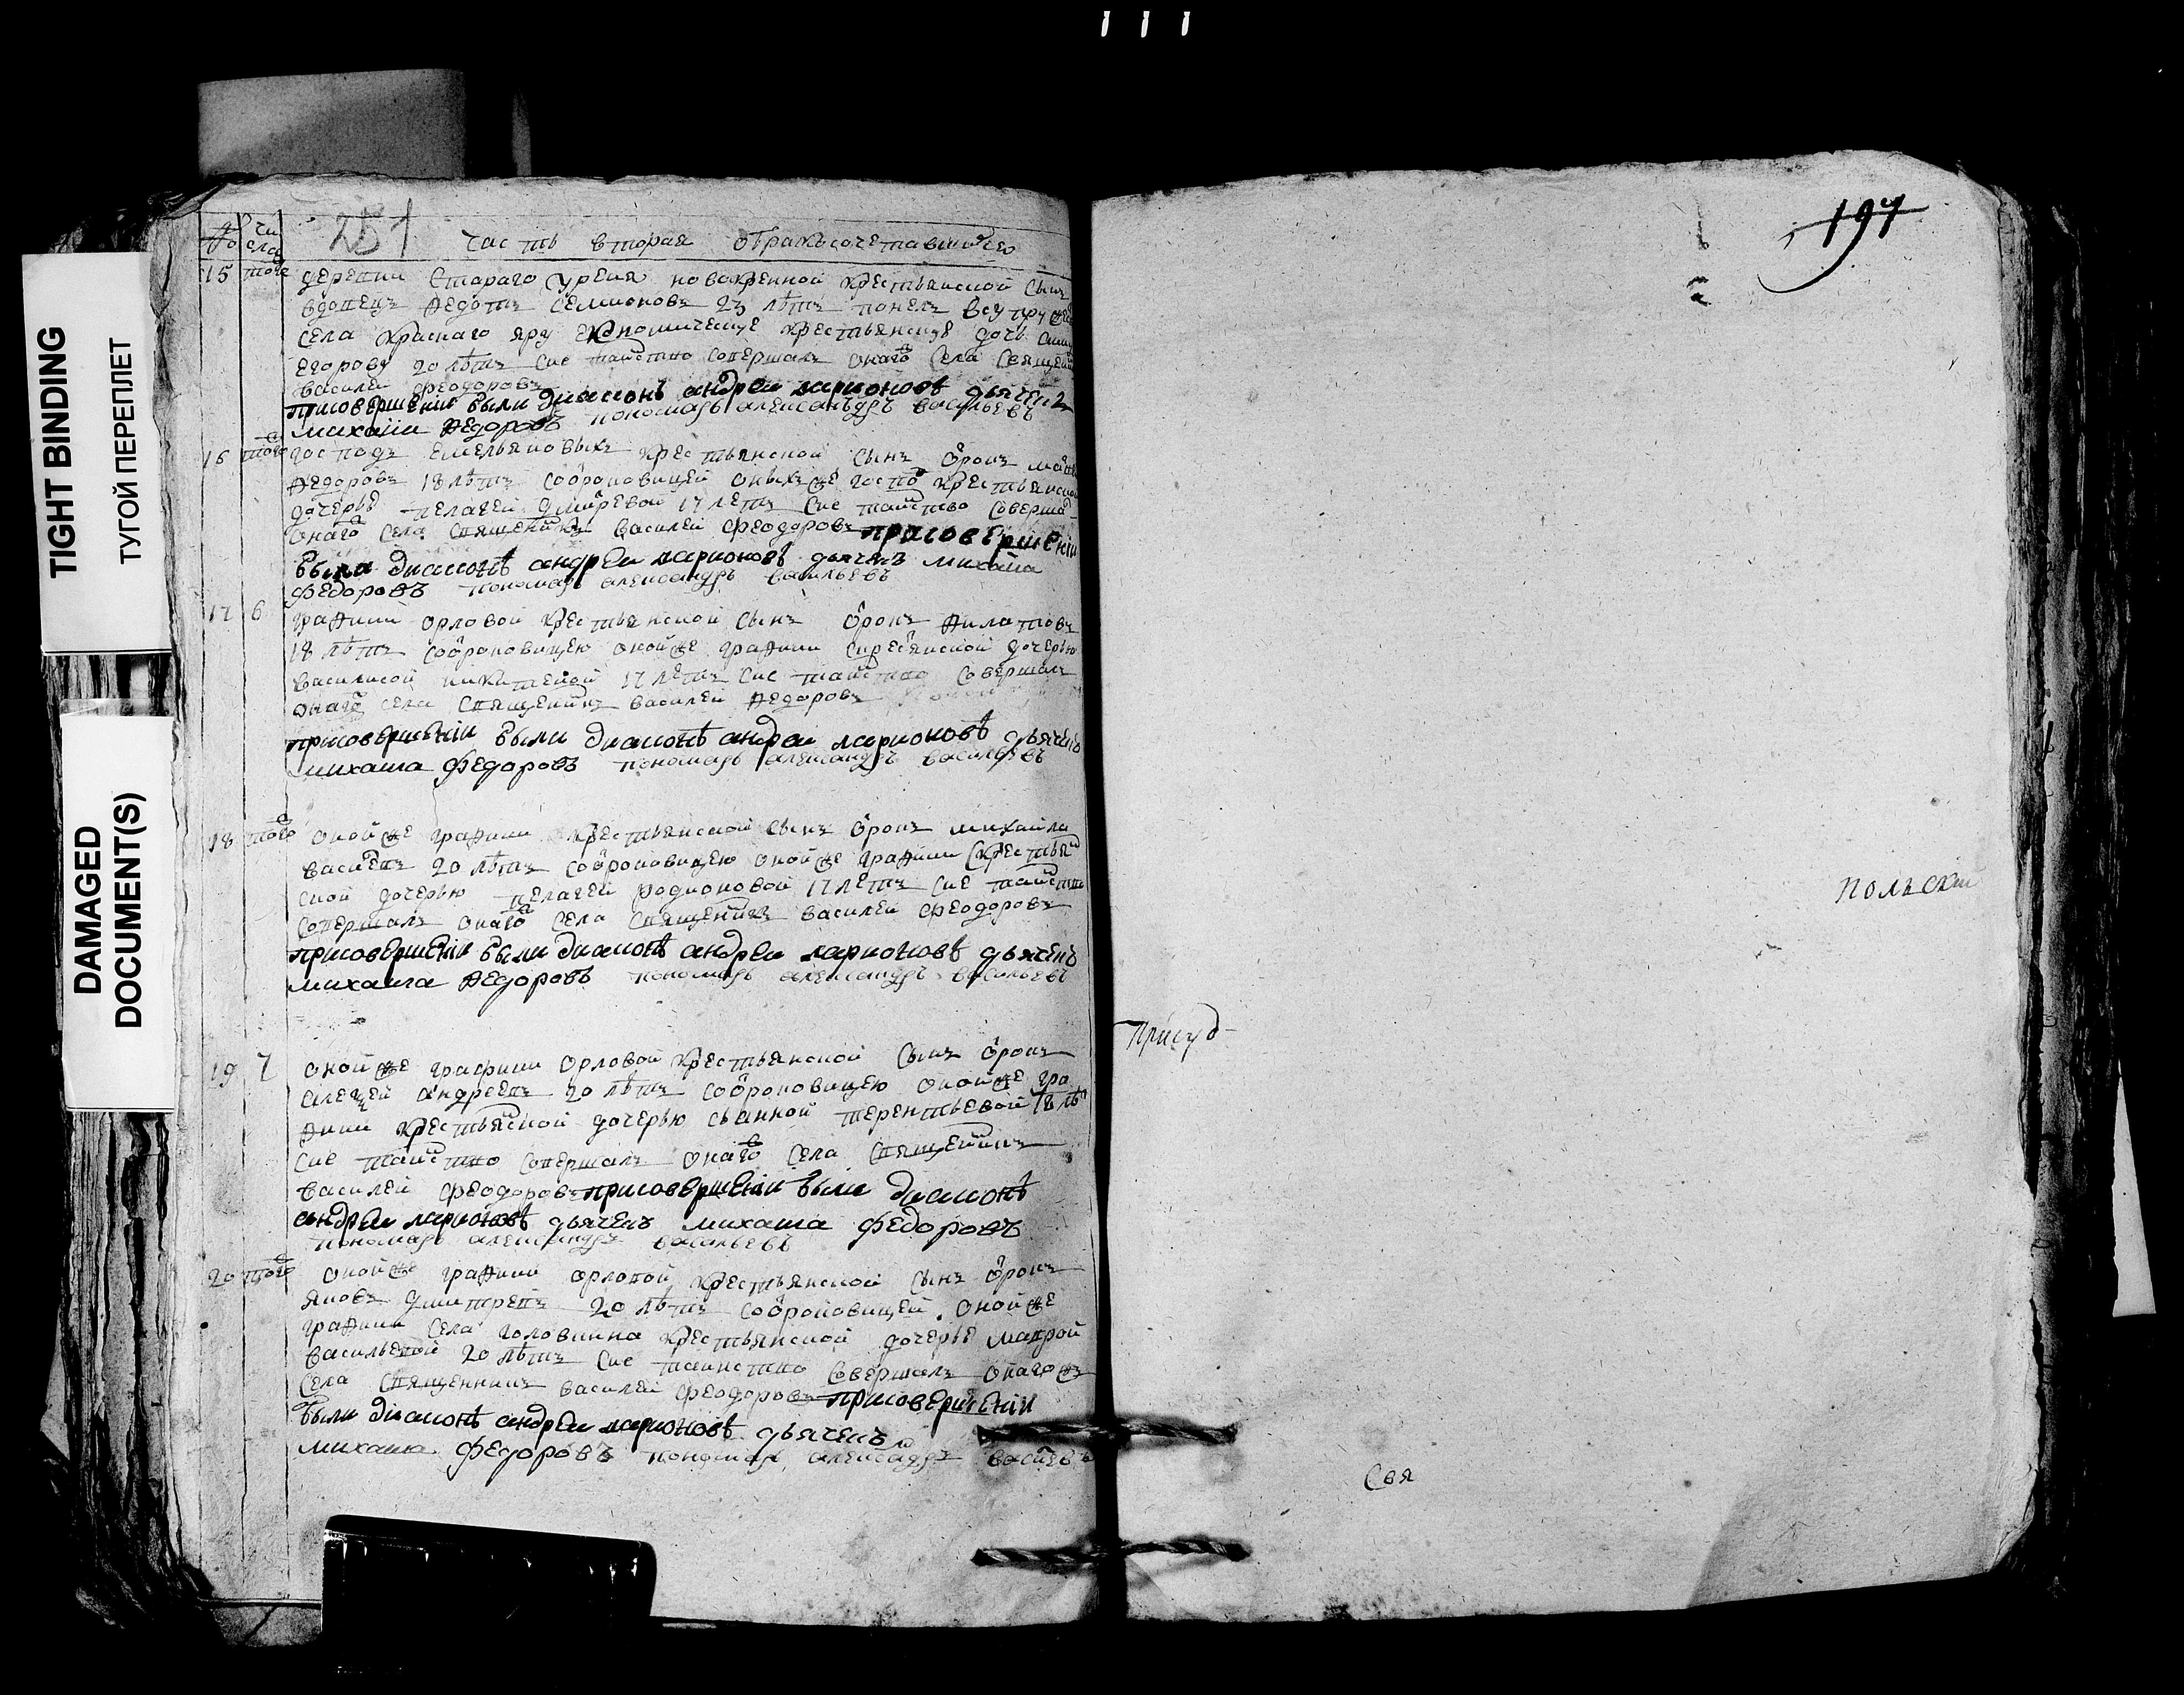 TIGHT BINDING
ТУГОЙ ПЕРЕПЛЕТ
DAMAGED
DOCUMENT(S)
251
№ Числа Часть вторая о бракъсочетавшихся
15 того деревни Стараго уреня новокрещенной крестьянской сынъ
вдовецъ Федотъ Семионовъ 23 лѣтъ понелъ всупруже
села Краснаго яру екиномическуе крестьянскуе дочь
Егорову 20 лѣтъ сие таинство совершалъ онаго села священ
василей феодоровъ
присовершѣнiи были диаконъ андреи ларионовъ дьячекъ
михаила Федоровъ пономарь александръ васильевъ
16 того господъ Емельяновыхъ крестьянской сынъ отрокъ
Федоровъ 18 лѣтъ собтроковицей оныхже госпо крестьянской
дочерью пелагей дмитревой 17 летъ сие таинство соверша
онаго села священикъ василей феодоровъ присовершѣнiи
были диаконъ андреи ларионовъ дьячекъ михаила
федоровъ пономарь александръ васильевъ
17 6 графини орловой крестьянской сынъ отрокъ Филатовъ
18 лѣтъ сотроковицею онойже графини скрестьянской дочерью
василисой никитевой 17 летъ сие таинство совершалъ
онаго села священикъ василей Федоровъ
присовершѣнiи были диаконъ андреи ларионовъ дьячекъ
михаила федоровъ пономарь александръ васильевъ
18 того онойже графини крестьянской сынъ отрокъ михайла
васильевъ 20 лѣтъ сотроковицею онойже графини скрестьян
ской дочерью пелагей родионовой 17 летъ сие таинство
совершалъ онаго села священикъ василей феодоровъ
присовершѣнiи были диаконъ андреи ларионовъ дьячекъ
михаила Федоровъ пономарь александръ васильевъ
19 7 онойже графини орловой крестьянской сынъ отрокъ
алексѣй андреевъ 20 лѣтъ сотроковицею онойже гра
фини крестьянской дочерью сванной терентьевой 18 лѣ
сие таинство совершалъ онаго села священикъ
василей феодоровъ присовершѣнiи были диаконъ
андреи ларионовъ дьячекъ михаила федоровъ
пономарь александръ васильевъ
20 того онойже графини орловой крестьянской сынъ отрокъ
яковъ дмитревъ 20 лѣтъ сотроковицей онойже
графини села головинна крестьянской дочерье маврой
васильевой 20 лѣтъ сие таинство совершалъ онагожъ
села священникъ василей феодоровъ присовершѣнiи
были диаконъ андреи ларионовъ дьячекъ
михаила федоровъ пономарь александръ васильевъ
197
польски
присуд
Свя